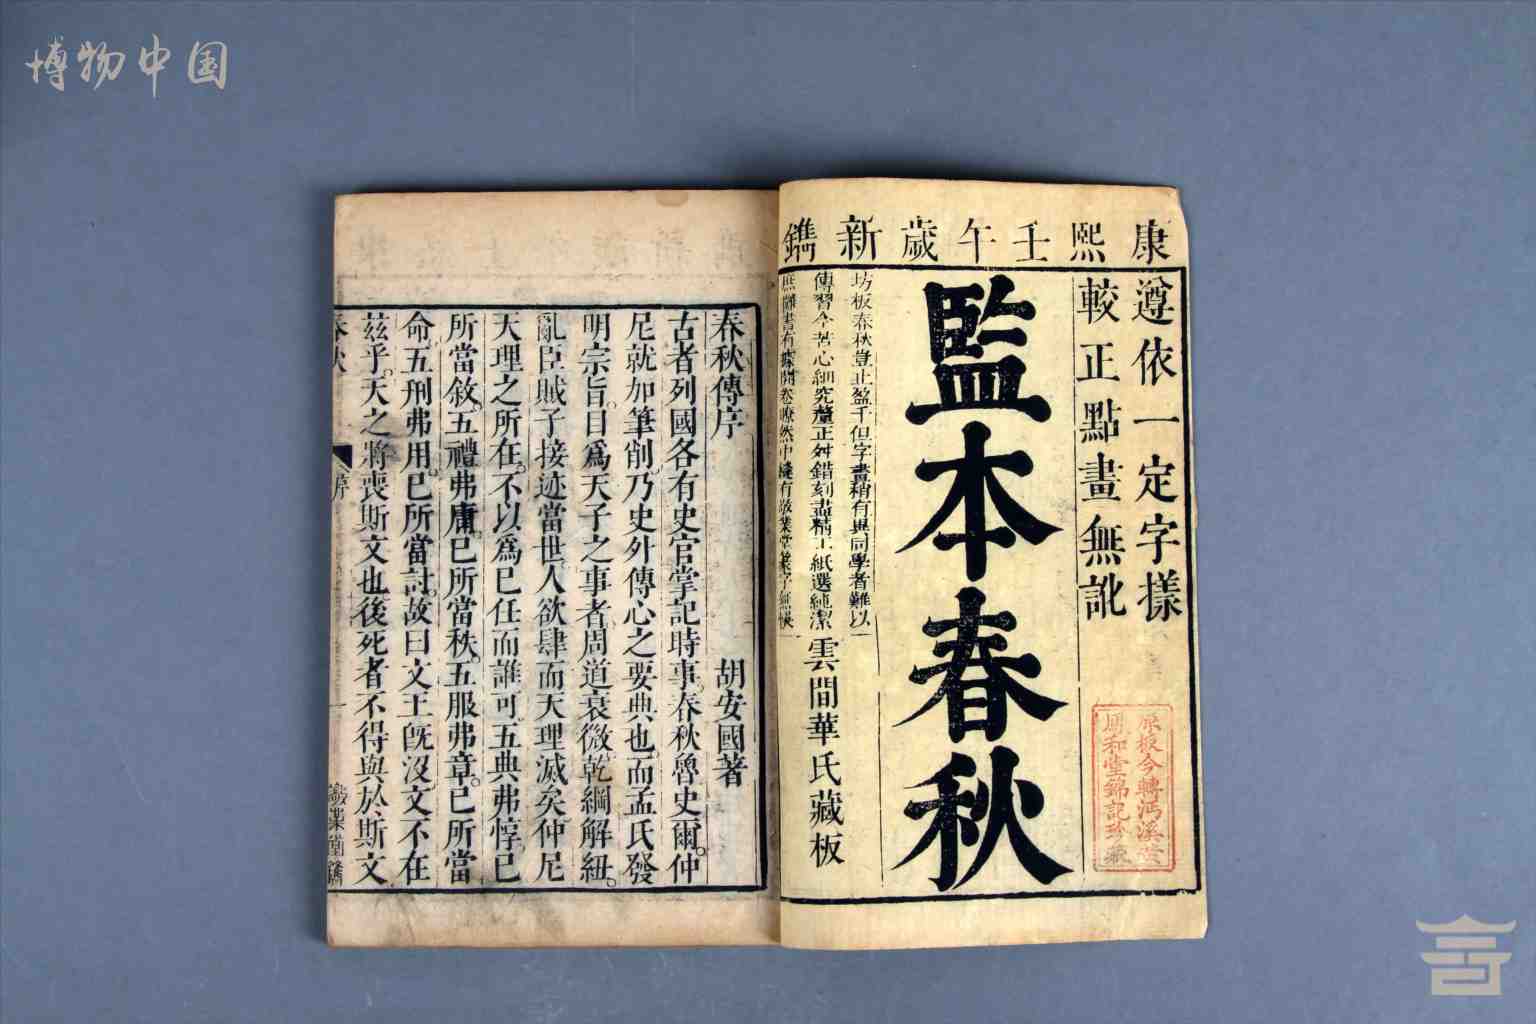 博物中国
康熙壬午歲新鐫
遵依一定字樣
較正點畫無訛
監本春秋
坊板春秋豈止盈千但字畫稍有異同學者難以
傳習今苦心細究釐正舛錯刻盡精工紙選純潔
雲間華氏藏板
原板今轉
和堂錦記珍藏
春秋傳序
胡安國著
古者列國各有史官掌記時事春秋魯史爾仲
尼就加筆削乃史外傳心之要典也而孟氏發
明宗旨目爲天子之事者周道衰微乾綱解紐
亂臣賊子接迹當世人欲肆而天理滅矣仲尼
天理之所在不以爲已任而誰可五典弗惇已
所當敘五禮弗庸已所當秩五服弗章已所當
命五刑弗用已所當討故曰文王旣沒文不在
茲乎天之將喪斯文也後死者不得與於斯文
春秋
序
一